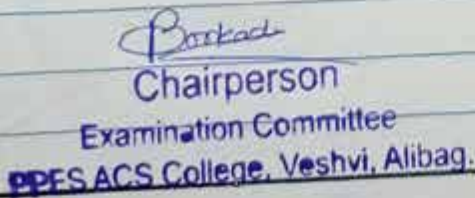 Chairperson
Examination Committee
PPES ACS College, Veshvi, Alibag.